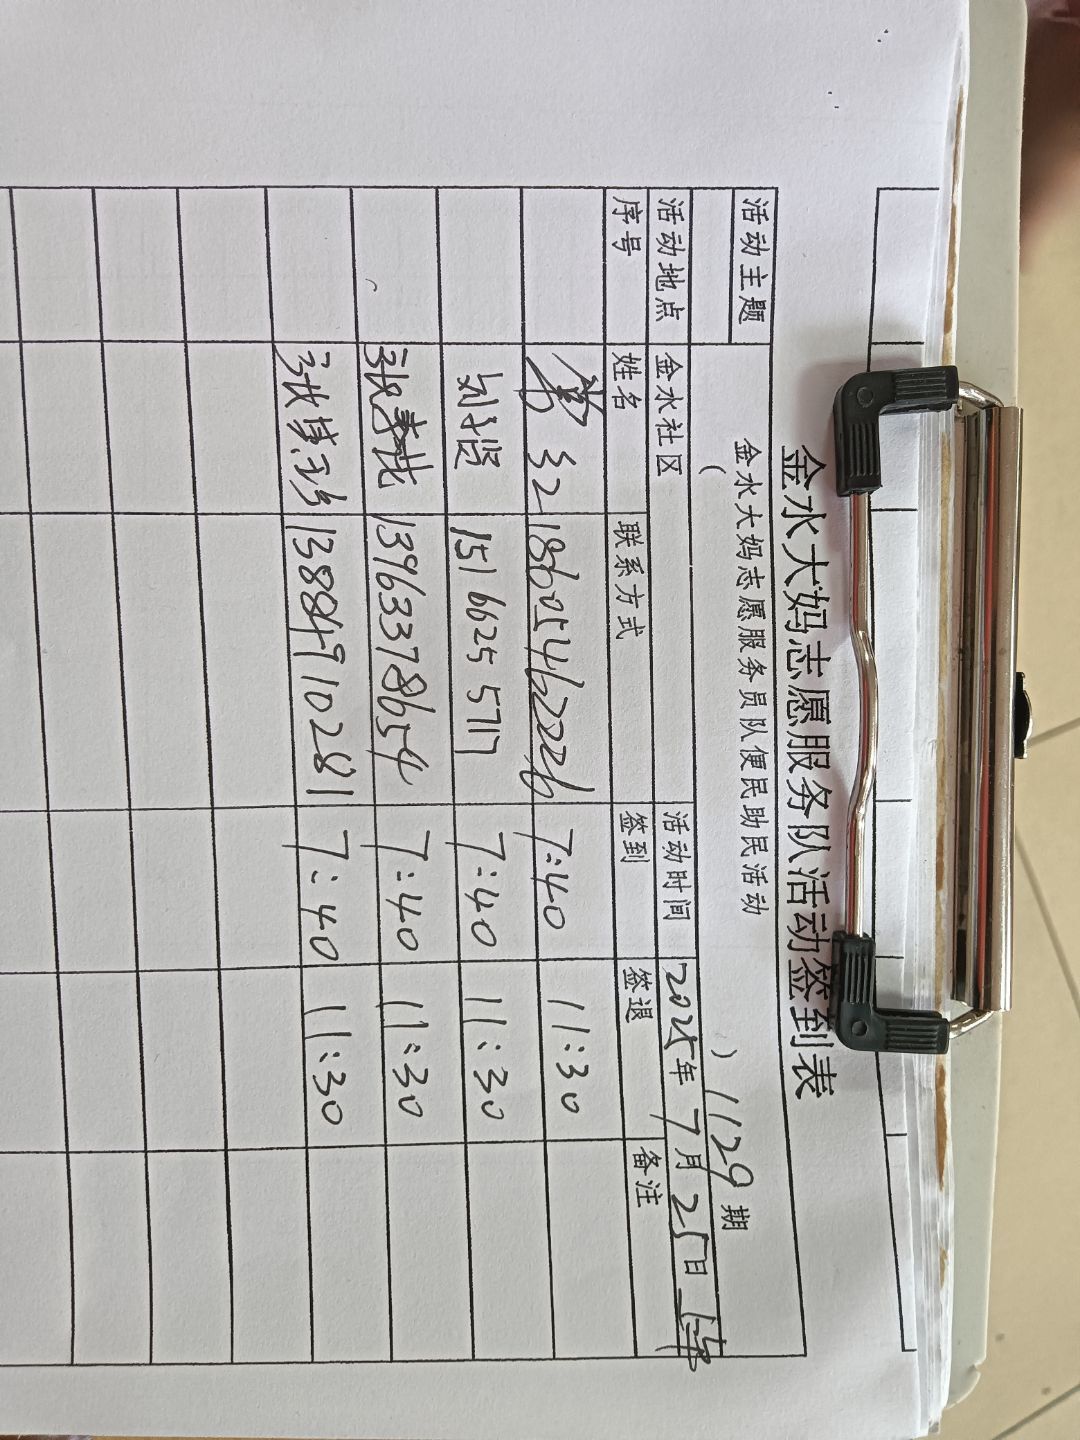 金水大妈志愿服务队活动签到表
活动主题 金水大妈志愿服务员队便民助民活动
( ) 1129期
活动地点 金水社区 活动时间 2025年7月25日上午
序号 姓名 联系方式 签到 签退 备注
18605462226 7:40 11:30
刘子贤 15166255717 7:40 11:30
13963378654 7:40 11:30
13884910281 7:40 11:30